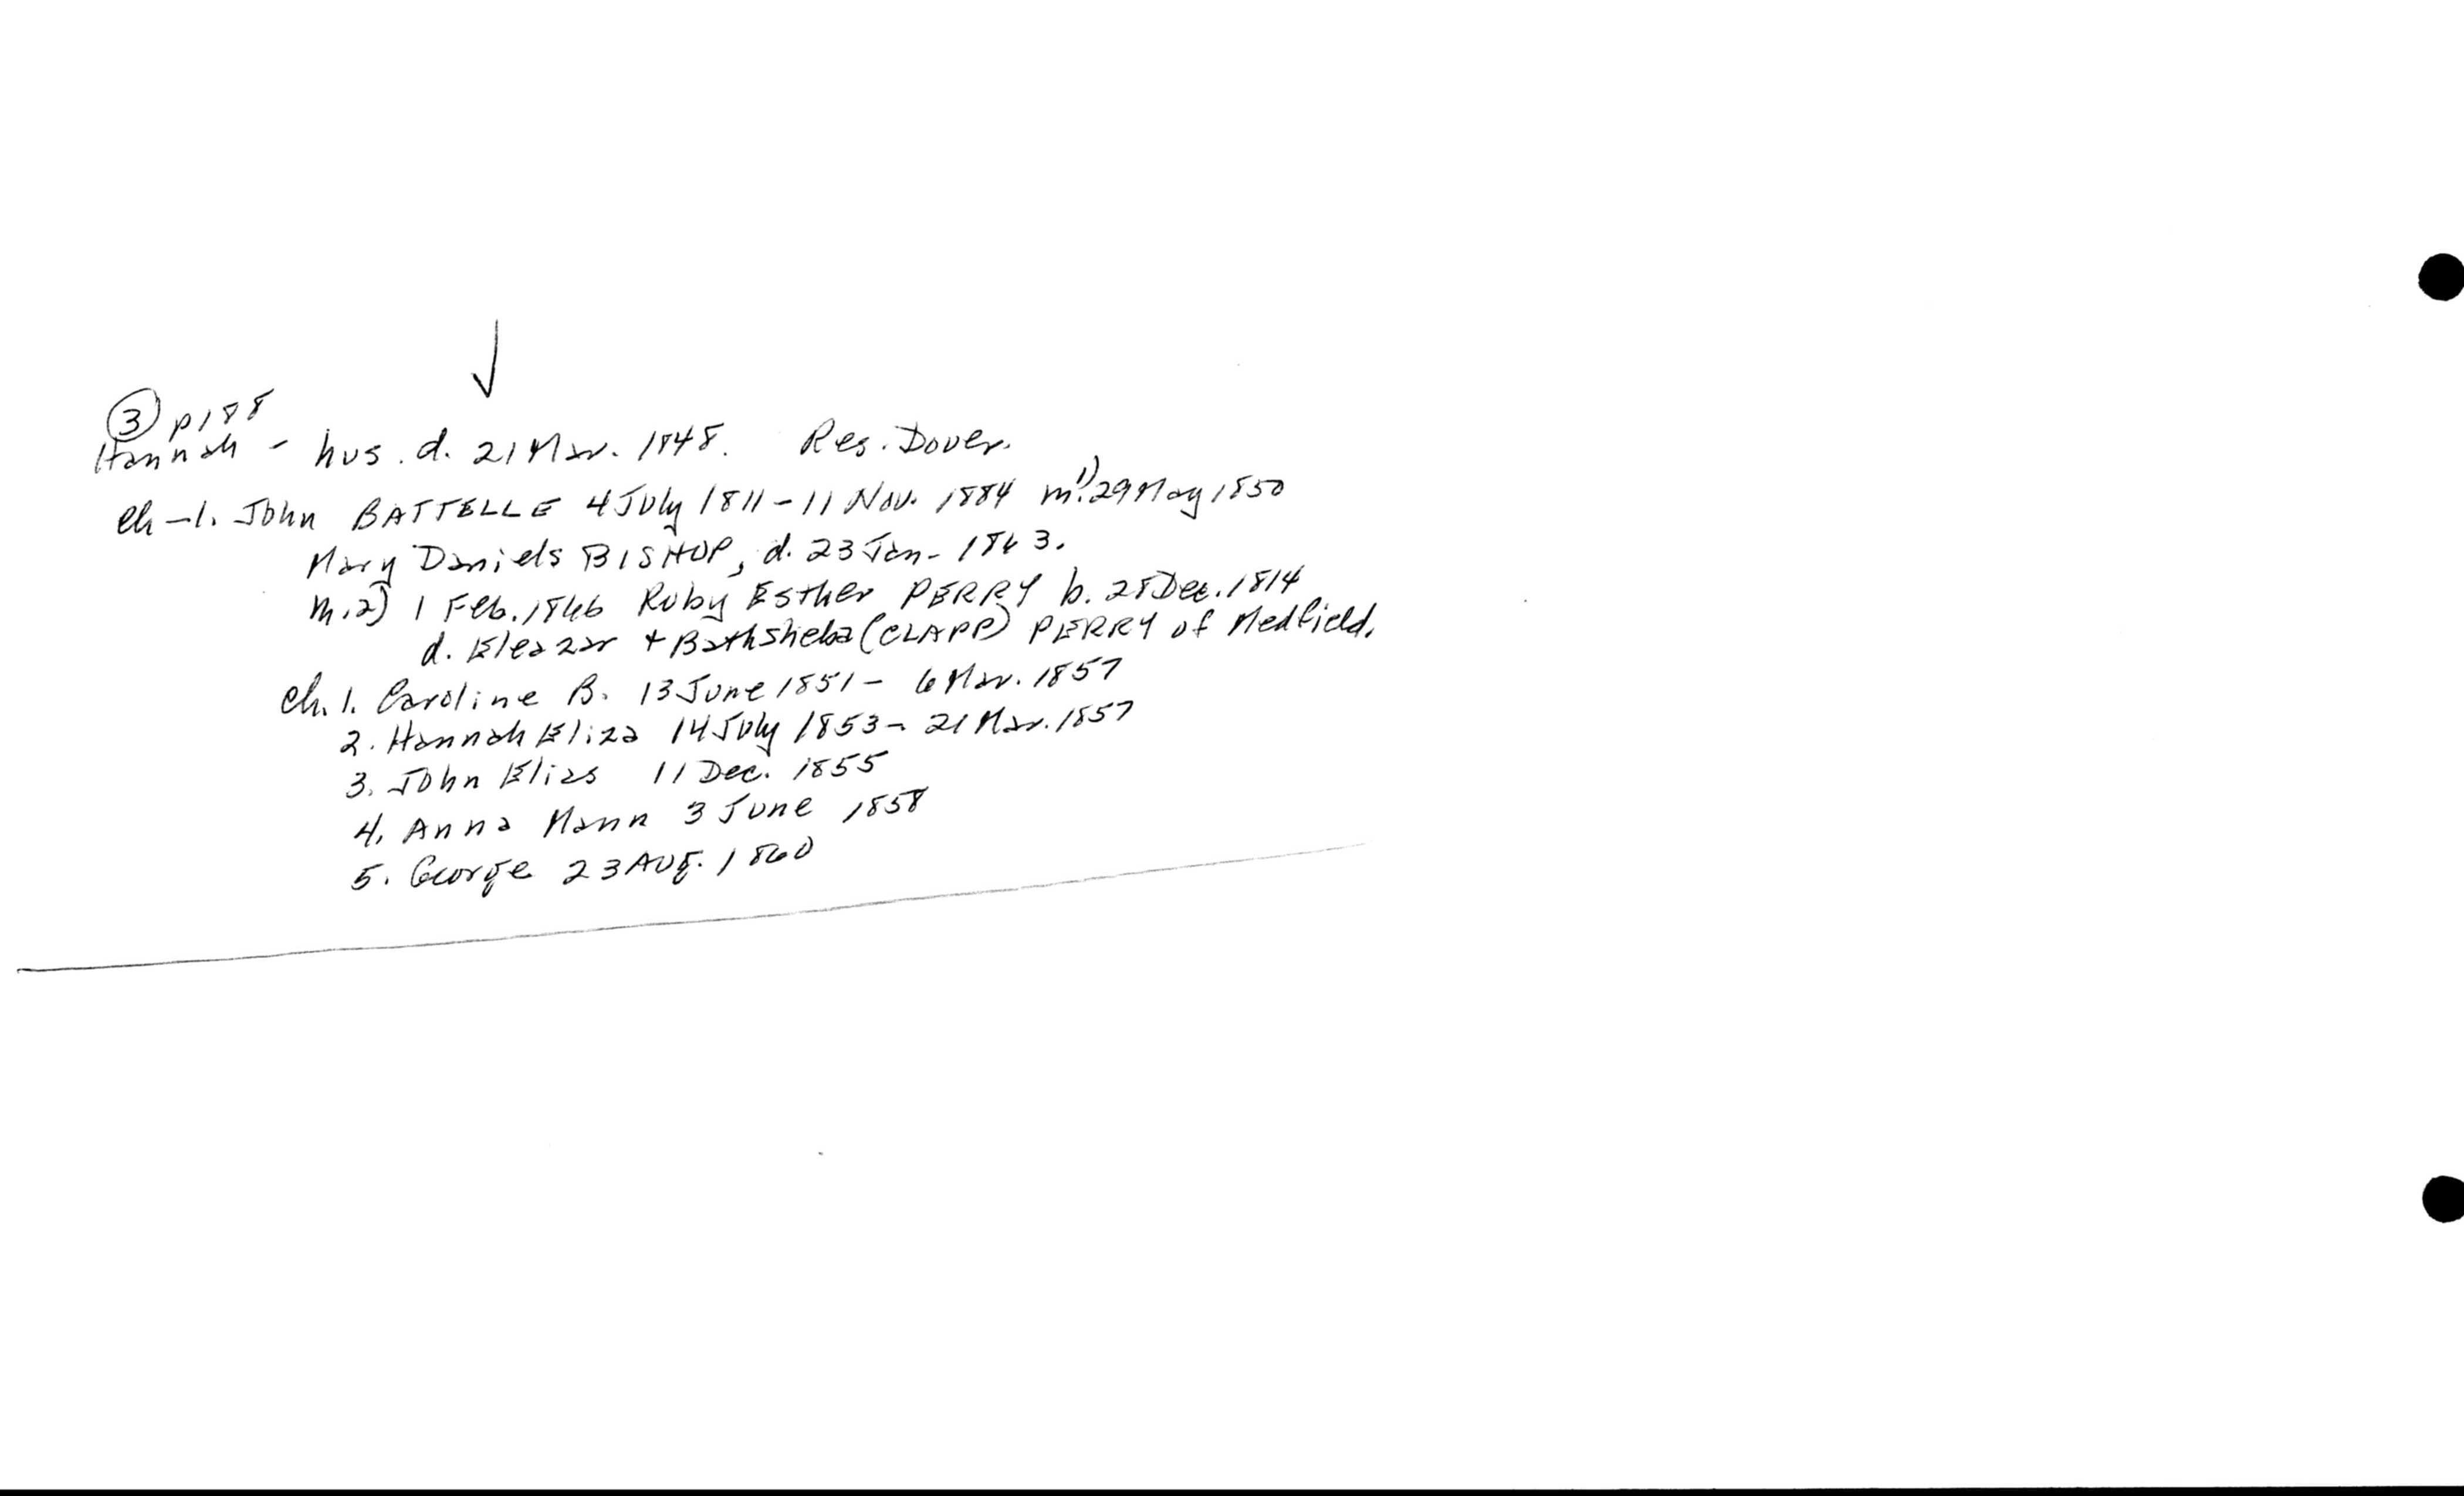 ③ p188
Hannah - hus. d. 21 Mar. 1848. Res. Dover.
Ch-1. John BATTELLE 4 July 1811-11 Nov. 1884 m.1) 29 May 1850
Mary Daniels BISHOP, d. 23 Jan- 1863.
m.2) 1 Feb. 1866 Ruby Esther PERRY b. 28 Dec. 1814
d. Eleazar + Bathsheba (CLAPP) PERRY of Medfield.
Ch. 1. Caroline B. 13 June 1851- 6 Mar. 1857
2. Hannah Eliza 14 July 1853- 21 Mar. 1857
3. John Elias 11 Dec. 1855
4. Anna Mann 3 June 1858
5. George 23 Aug. 1860